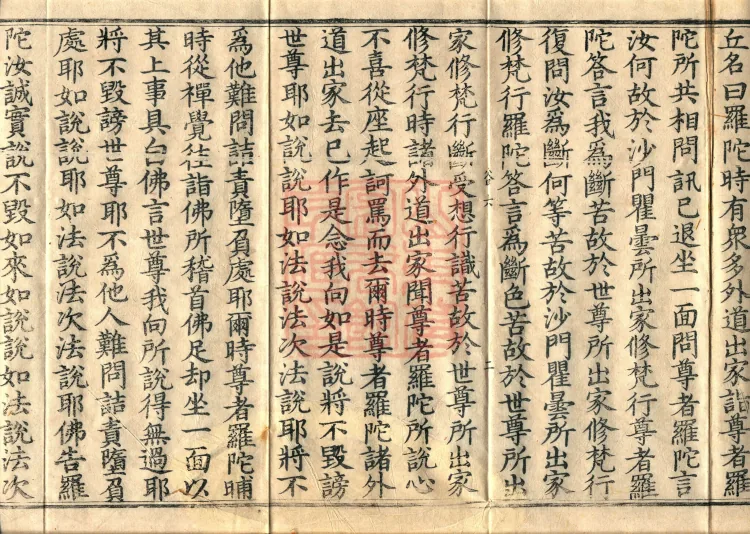 丘名曰羅陀時有衆多外道出家詣尊者羅
陀所共相問訊已退坐一面問尊者羅陀言
汝何故於沙門瞿曇所出家修梵行尊者羅
陀答言我爲斷苦故於世尊所出家修梵行
復問汝爲斷何等苦故於沙門瞿曇所出家
修梵行羅陀答言爲斷色苦故於世尊所出
家修梵行斷受想行識苦故於世尊所出家
修梵行時諸外道出家聞尊者羅陀所說心
不喜從座起訶罵而去爾時尊者羅陀諸外
道出家去已作是念我向如是說將不毀謗
世尊耶如說說耶如法說法次法說耶將不
爲他難問詰責墮負處耶爾時尊者羅陀晡
時從禪覺往詣佛所稽首佛足却坐一面以
其上事具白佛言世尊我向所說得無過耶
將不毀謗世尊耶不爲他人難問詰責墮負
處耶如說說耶如法說法次法說耶佛告羅
陀汝誠實說不毀如來如說說如法說法次